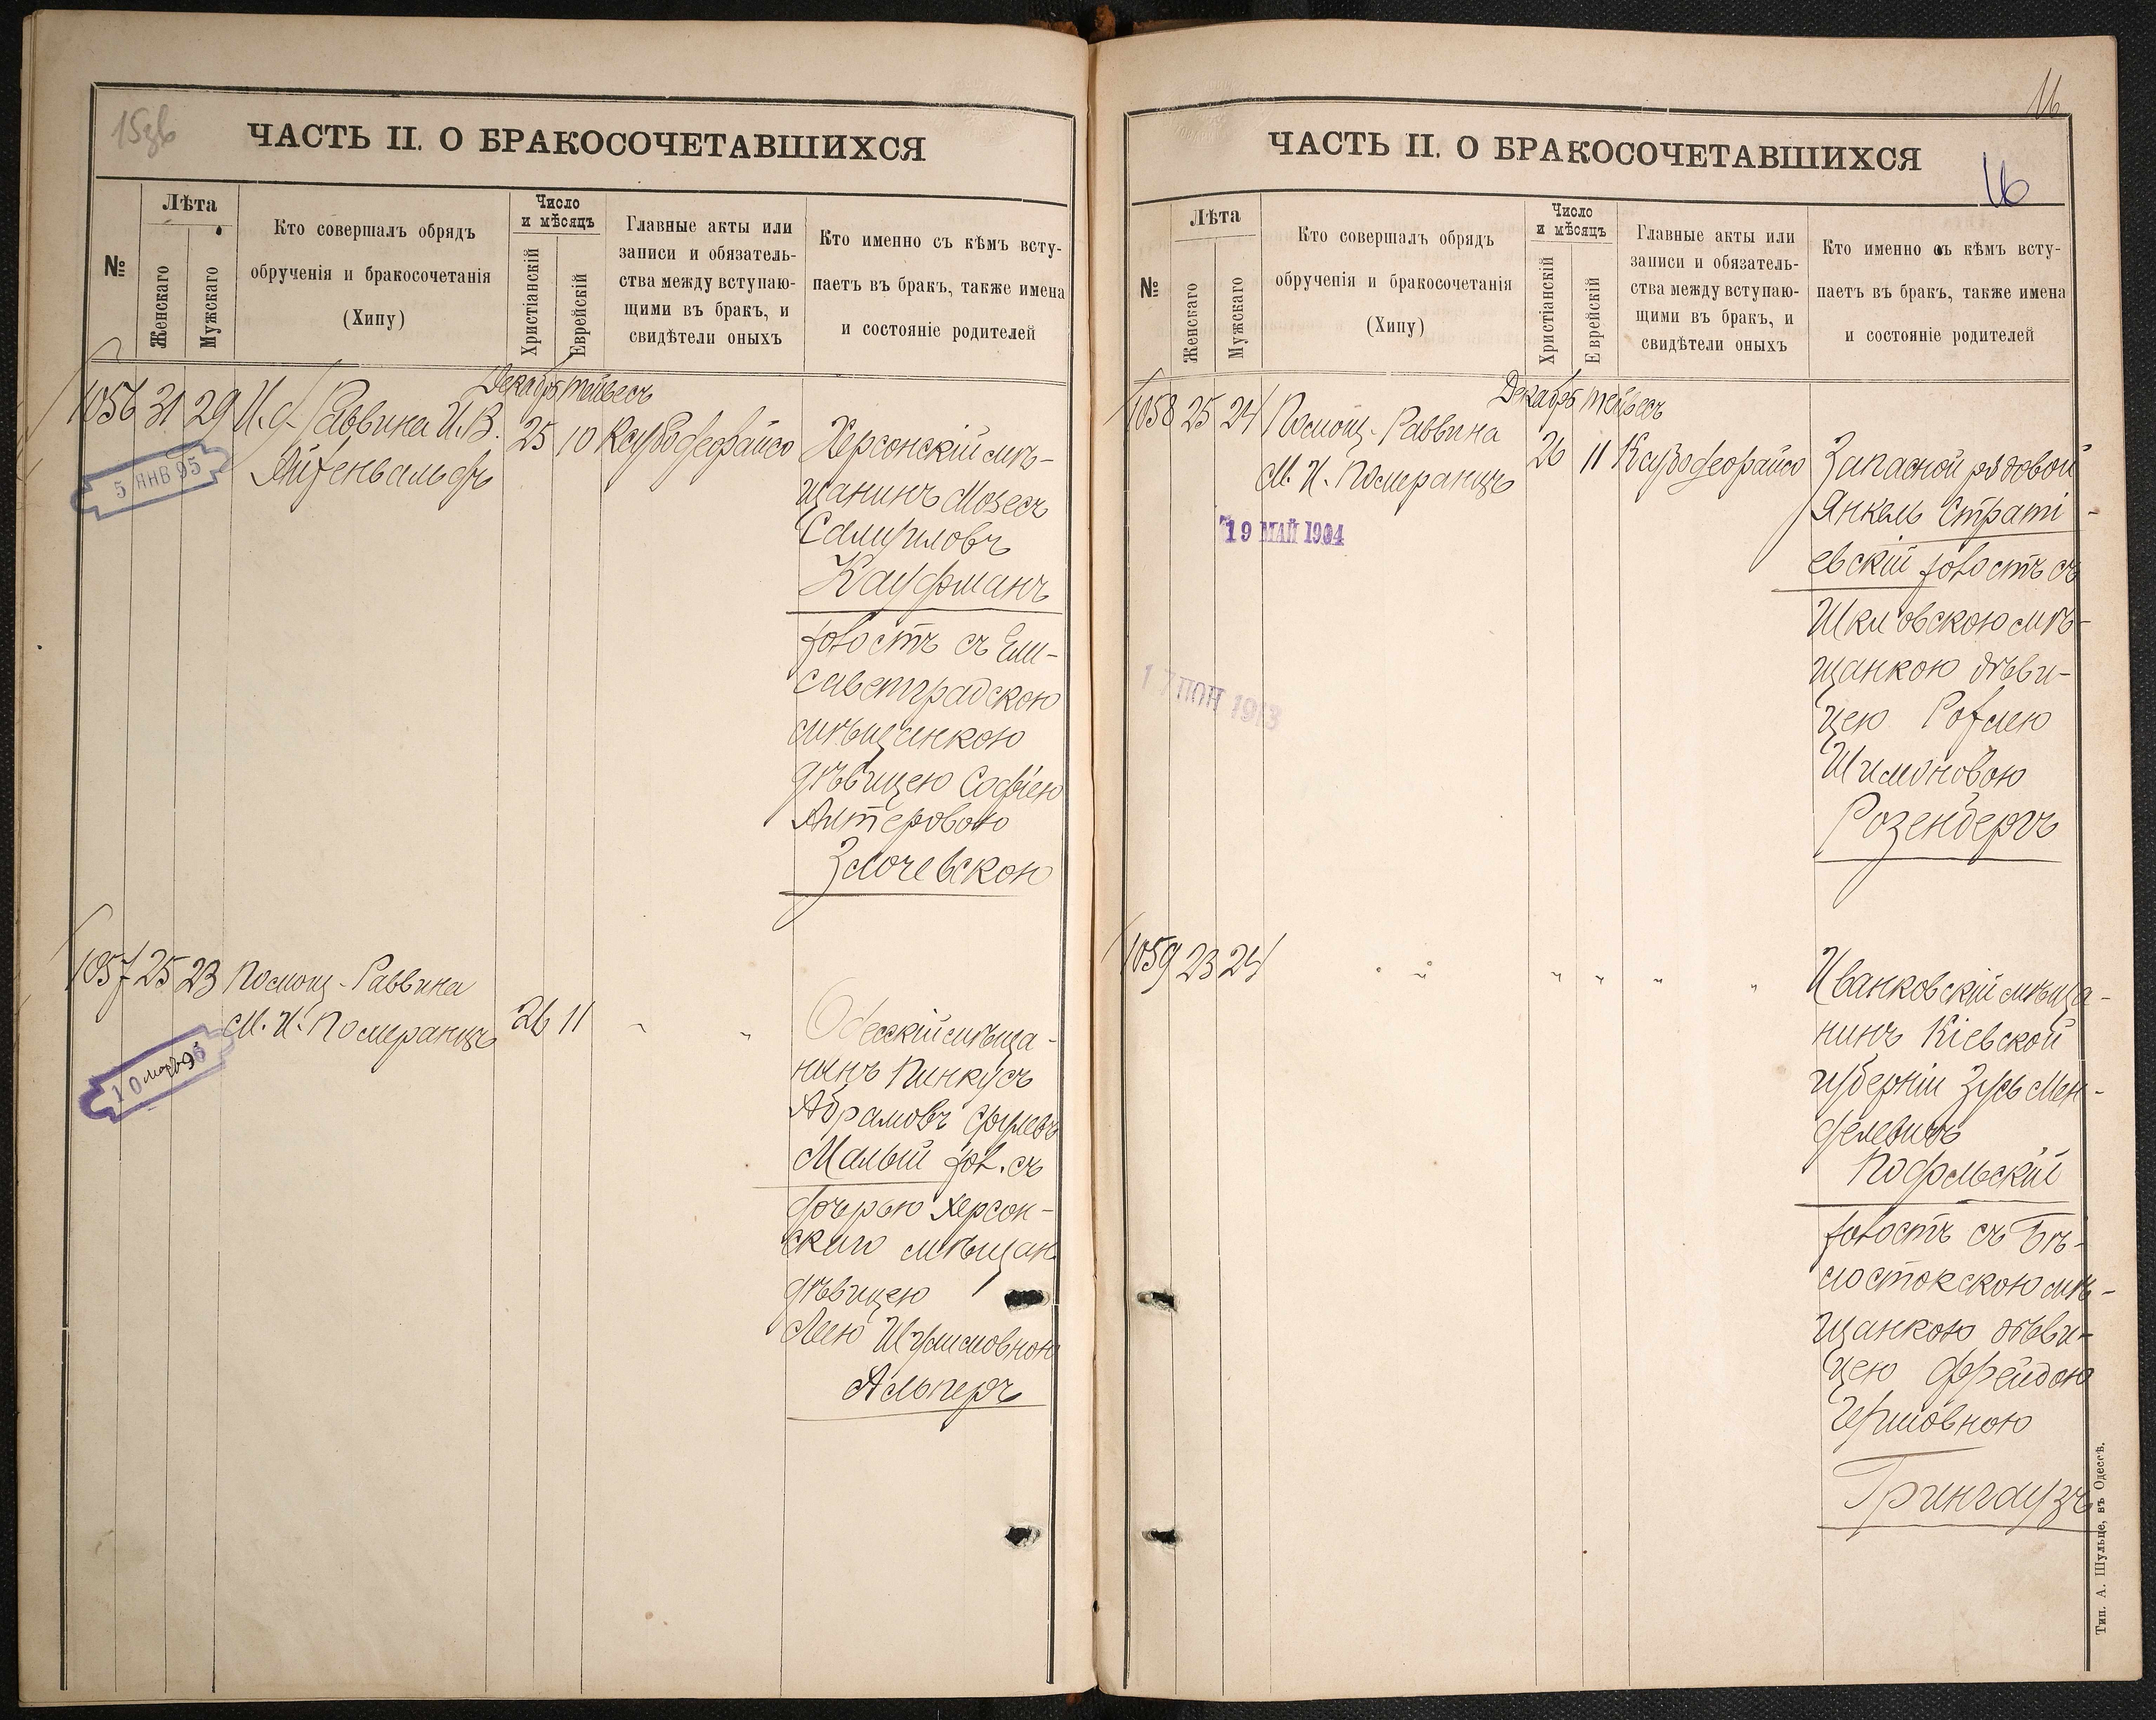 15зв
ЧАСТЬ II. О БРАКОСОЧЕТАВШИХСЯ
№
Лѣта
Женскаго
Мужскаго
Кто совершалъ обрядъ
обрученія и бракосочетанія
(Хипу)
Число
и мѣсяцъ
Христіанскій
Еврейскій
Главные акты или
записи и обязатель-
ства между вступаю-
щими въ бракъ, и
свидѣтели оныхъ
Кто именно съ кѣмъ всту-
паетъ въ бракъ, также имена
и состояніе родителей
Декабрь Тейвесъ
1056 31 29 И. д. Раввина И. В.
Айзенвальдъ
25 10
5 ЯНВ 95
Херсонскій мѣ-
щанинъ Мозесъ
Самуиловъ
Кауфманъ
холостъ съ Ели-
саветградскою
мѣщанкою
дѣвицею Софіею
Алтеровою
Злочевскою
1057 25 23 Помощ. Раввина
М. И. Померанцъ
26 11 " "
10
Одесскій мѣща-
нинъ Пинкусъ
Абрамовъ
Малый хол. съ
дочерью Херсон-
скаго мѣщан.
дѣвицею
Леею Шулимовною
Альперъ
16
ЧАСТЬ II. О БРАКОСОЧЕТАВШИХСЯ
16
№
Лѣта
Женскаго
Мужскаго
Кто совершалъ обрядъ
обрученія и бракосочетанія
(Хипу)
Число
и мѣсяцъ
Христіанскій
Еврейскій
Главные акты или
записи и обязатель-
ства между вступаю-
щими въ бракъ, и
свидѣтели оныхъ
Кто именно съ кѣмъ всту-
паетъ въ бракъ, также имена
и состояніе родителей
Декабрь Тейвесъ
1058 25 24 Помощ. Раввина
М. И. Померанцъ
26 11
19 МАЙ 1904
17 ІЮН 1913
Запасной рядовой
Янкель Страті-
евскій холостъ съ
Шкловскою мѣ-
щанкою дѣви-
цею Рохлею
Шимоновою
Розенбергъ
1059 23 24 " " " " " "
Иванковскій мѣща-
нинъ Кіевской
губерніи Зусь Мен-
делевичъ
Подольскій
холостъ съ Бѣ-
лостокскою мѣ-
щанкою дѣви-
цею Фрейдою
Гершовною
Грингаузъ
Тип. А. Шульце, въ Одессѣ.